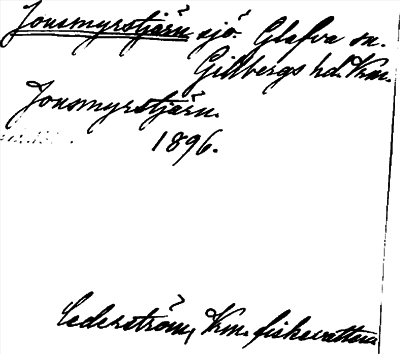 Jonsmyrstjärn sjö. Glafva sn.
Gillbergs hd. Vrm.
Jonsmyrstjärn.
1896.
Cederström, Vrm. fiskevatten